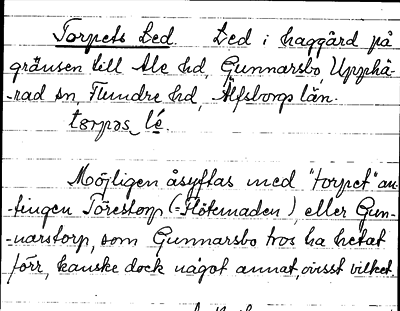 Torpets Led. Led i haggård på
gränsen till Ale hd, Gunnarsbo, Upphä-
-rad sn, Flundre hd, Älfsborgs län.
tɷrpəs lé.
Möjligen åsyftas med "torpet" an-
-tingen Törestorp (=Slötemaden), eller Gun-
-narstorp, som Gunnarsbo tros ha hetat
förr, kanske dock något annat, ovisst vilket.